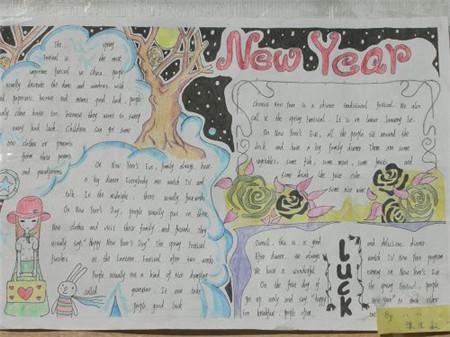 New Year
The spring
festival is the most
important festival in China. people
usually decorate the doors and windows with
red papercuts. means good luck. people
usually clean house too. because they want to sweep
away bad luck. Children can get some
new clothes or presents
from their parents
and grandparents.
On New Year's Eve, family always have
a big dinner. Everybody are watch TV and
talk. In the midnight, there usually fireworks.
On New Year's Day, people usually put on their
New clothes and visit their family and friends. they
usually say: "Happy New Year's Day". The Spring Festival
finishes at the Lantern Festival after two weeks.
People usually eat a kind of rice dumpling
called yuanxiao. It can take
people good luck
Chinese New Year is a Chinese traditional festival. We also
call it the spring festival. It is on
On New Year's Eve, all the people sit around the
desk and have a big family dinner. There are some
vegetables, some fish, some meat, some juices and
some drinks like juice coke.
some rice wine
Overall, this is a good and delicious dinner.
After dinner, we always watch TV New Year program
We have a wonderful evening on New Year's Eve.
On the first day of the spring festival, people
get up early and say "happy New Year" to each other
for breakfast, people often
LUCK
By